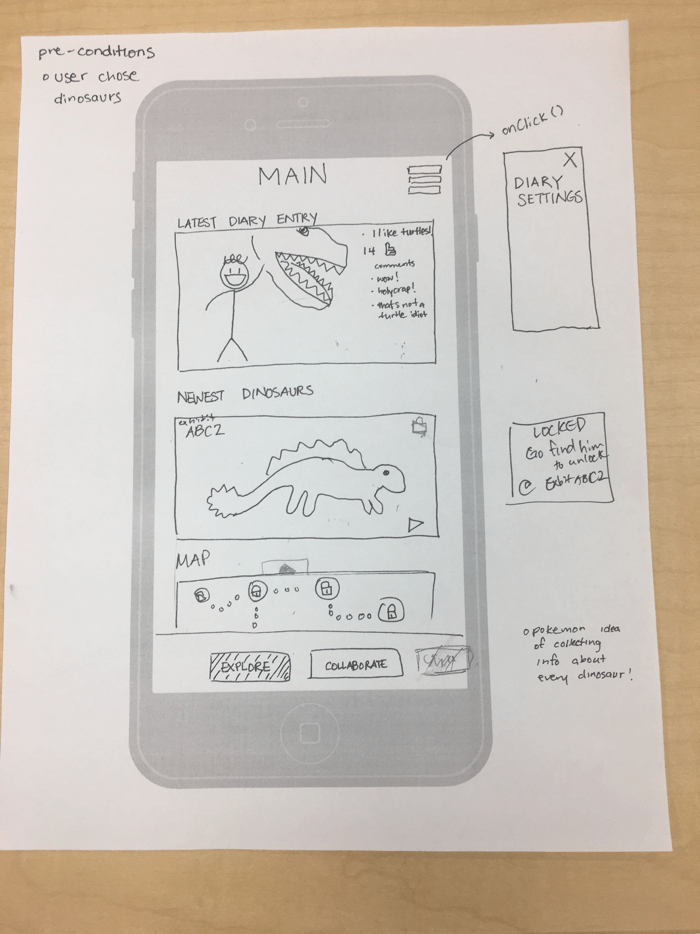 pre-conditions
o user chose
dinosaurs
onClick()
MAIN
X
DIARY
SETTINGS
LATEST DIARY ENTRY
• I like turtles!
14
comments
• wow!
• holycrap!
• thats not a
turtle idiot
NEWEST DINOSAURS
exhibit
ABC2
LOCKED
Go find him
to unlock
@ Exbit ABC2
MAP
o pokemon idea
of collecting
info about
every dinosaur!
EXPLORE
COLLABORATE